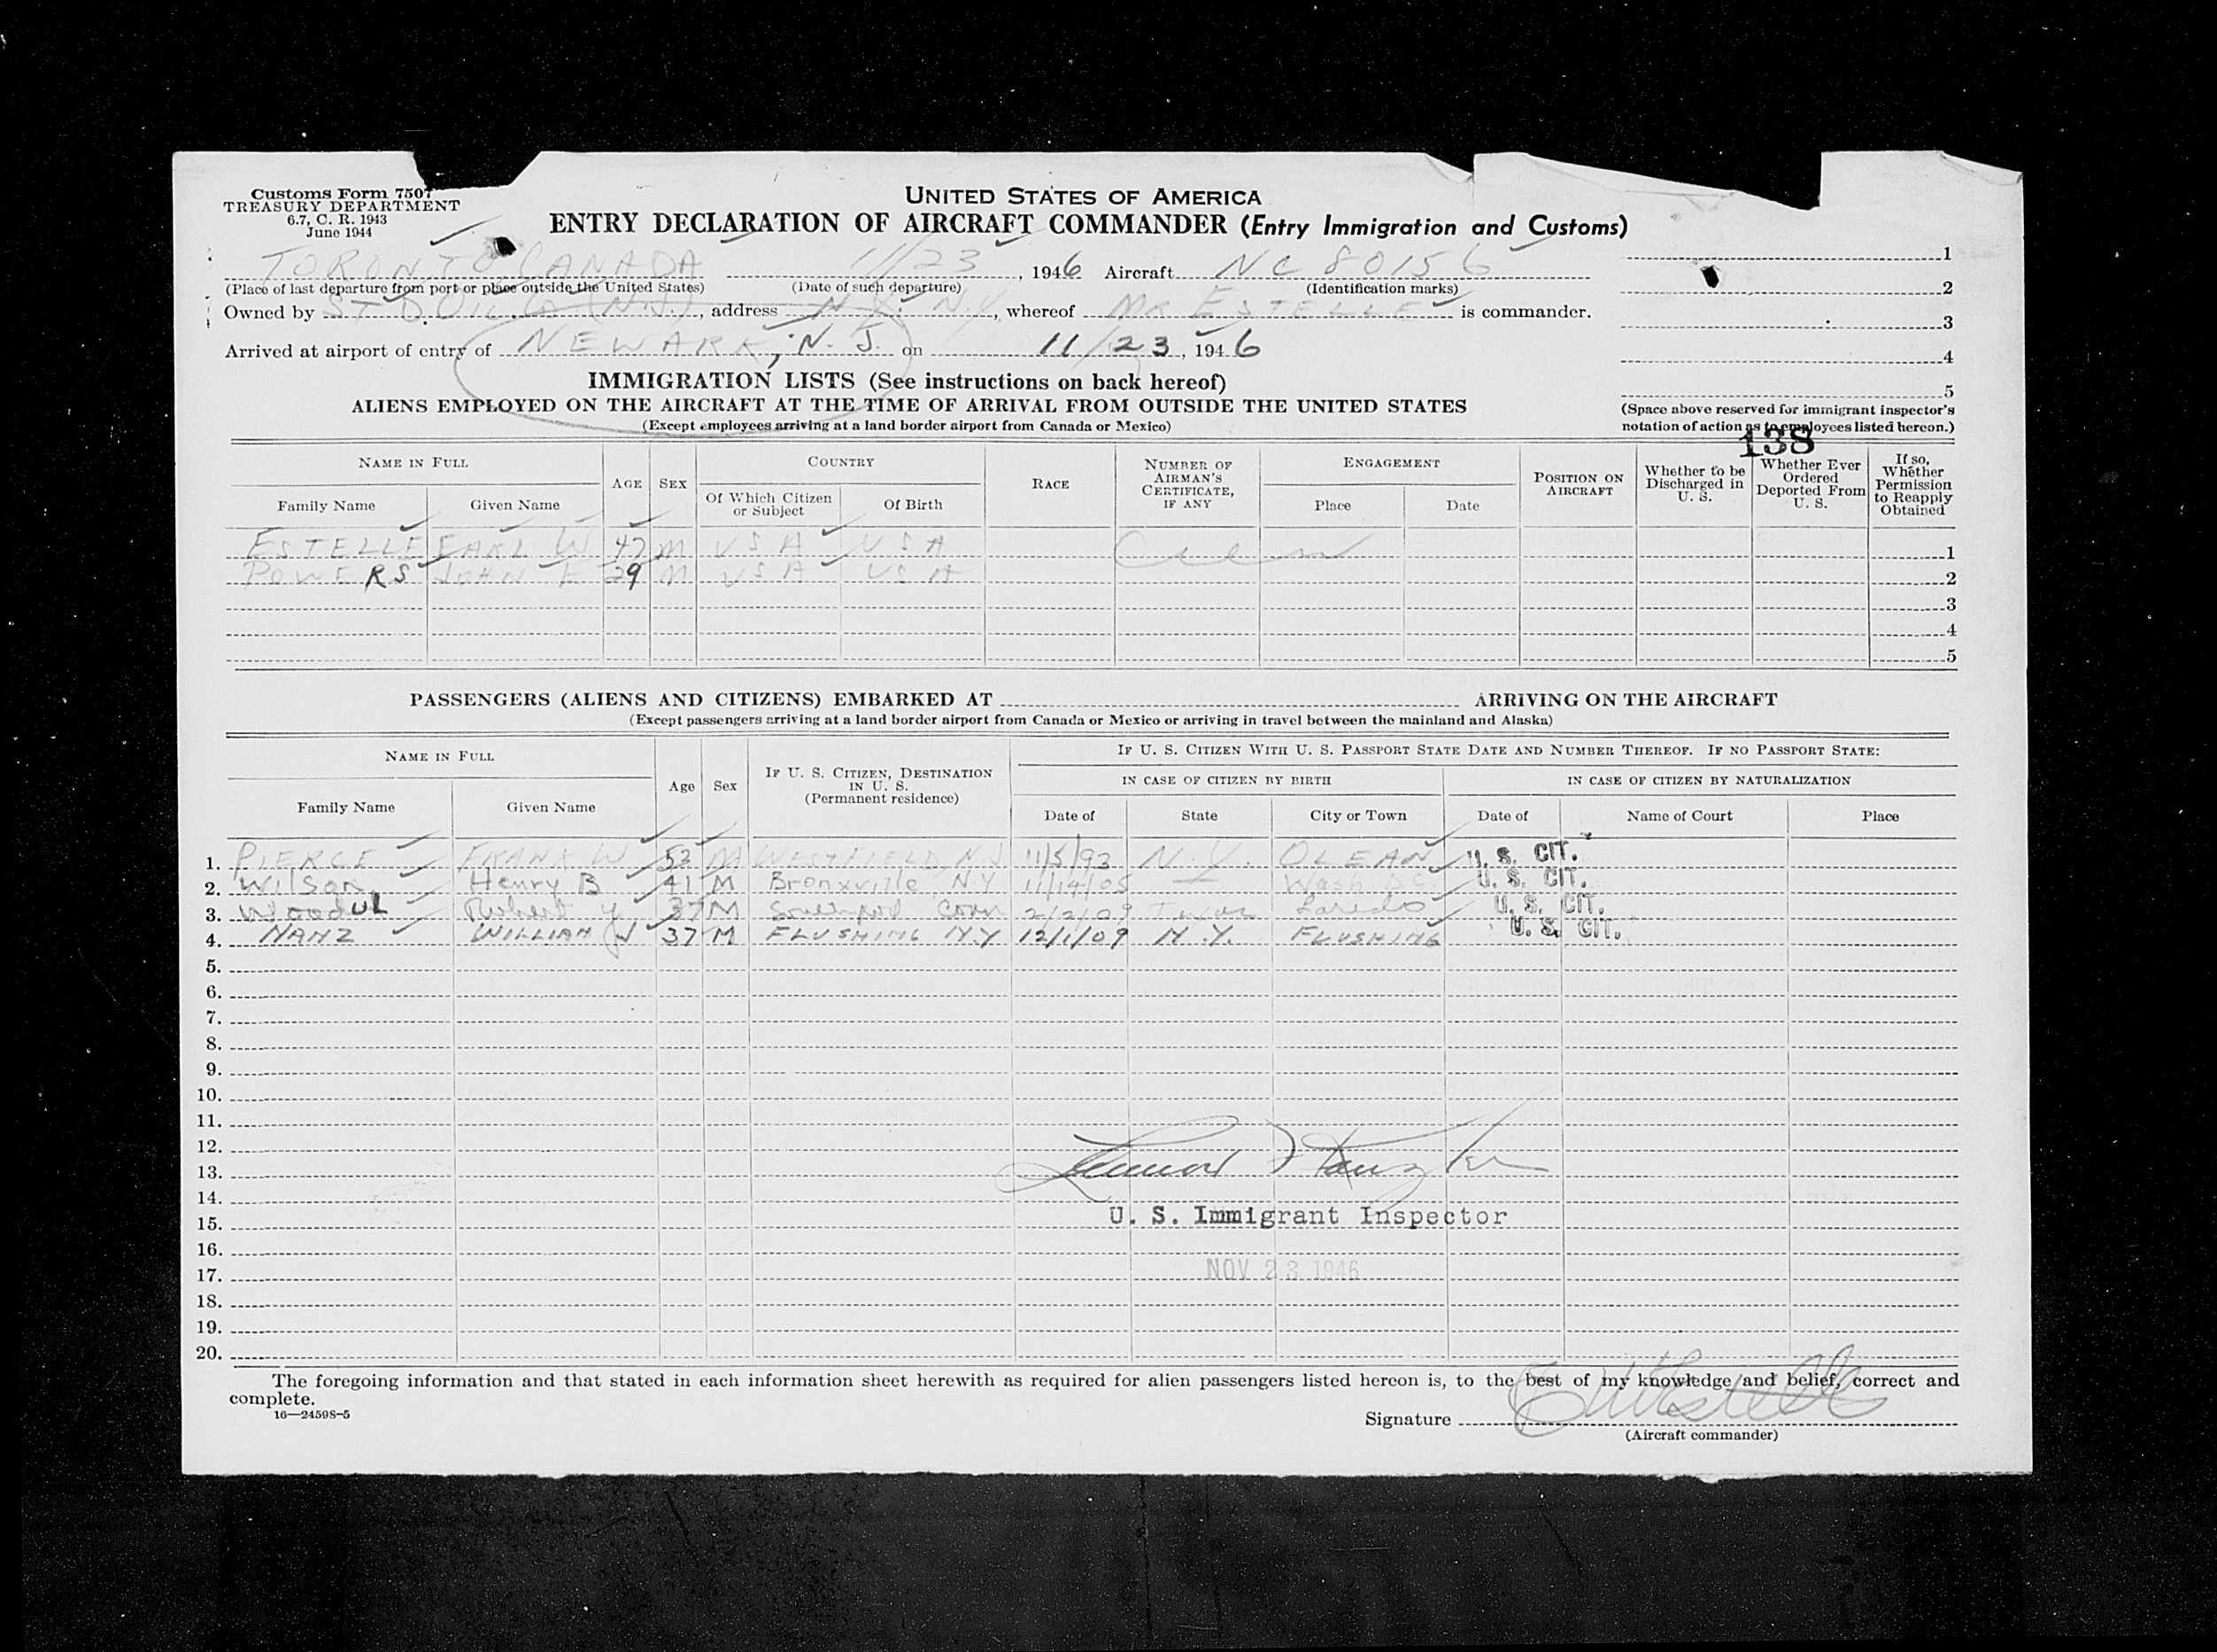 Customs Form 7507
TREASURY DEPARTMENT
6.7, C. R. 1943
June 1944
UNITED STATES OF AMERICA
ENTRY DECLARATION OF AIRCRAFT COMMANDER (Entry Immigration and Customs)
TORONTO CANADA 11/23, 1946 Aircraft NC 80156
(Place of last departure from port or place outside the United States) (Date of such departure) (Identification marks)
Owned by ST D OIL Co (N.J.), address N.Y. N.Y., whereof MR ESTELLE is commander.
Arrived at airport of entry of NEWARK, N. J. on 11/23, 1946
1
2
3
4
5
(Space above reserved for immigrant inspector's
notation of action as to employees listed hereon.)
138
IMMIGRATION LISTS (See instructions on back hereof)
ALIENS EMPLOYED ON THE AIRCRAFT AT THE TIME OF ARRIVAL FROM OUTSIDE THE UNITED STATES
(Except employees arriving at a land border airport from Canada or Mexico)
NAME IN FULL AGE SEX COUNTRY RACE NUMBER OF AIRMAN'S CERTIFICATE, IF ANY ENGAGEMENT POSITION ON AIRCRAFT Whether to be Discharged in U. S. Whether Ever Ordered Deported From U. S. If so, Whether Permission to Reapply Obtained
Family Name Given Name Of Which Citizen or Subject Of Birth Place Date
ESTELLE EARL W 47 M USA USA 1
POWERS JOHN E 29 M USA USA 2
3
4
5
PASSENGERS (ALIENS AND CITIZENS) EMBARKED AT ARRIVING ON THE AIRCRAFT
(Except passengers arriving at a land border airport from Canada or Mexico or arriving in travel between the mainland and Alaska)
NAME IN FULL Age Sex IF U. S. CITIZEN, DESTINATION IN U. S. (Permanent residence) IF U. S. CITIZEN WITH U. S. PASSPORT STATE DATE AND NUMBER THEREOF. IF NO PASSPORT STATE:
IN CASE OF CITIZEN BY BIRTH IN CASE OF CITIZEN BY NATURALIZATION
Family Name Given Name Date of State City or Town Date of Name of Court Place
1. PIERCE FRANK W 53 M WESTFIELD N J 11/5/93 N. Y. OLEAN U. S. CIT.
2. Wilson Henry B 41 M Bronxville NY 11/14/05 — Wash D.C. U. S. CIT.
3. Woodul Robert Y. 37 M Southport Conn 2/2/09 Texas Laredo U. S. CIT.
4. NANZ WILLIAM J 37 M FLUSHING N.Y 12/1/09 N.Y. FLUSHING U. S. CIT.
5.
6.
7.
8.
9.
10.
11.
12.
13.
14.
15. U. S. Immigrant Inspector
16.
17. NOV 23 1946
18.
19.
20.
The foregoing information and that stated in each information sheet herewith as required for alien passengers listed hereon is, to the best of my knowledge and belief, correct and
complete.
16—24598-5
Signature EWEstelle
(Aircraft commander)